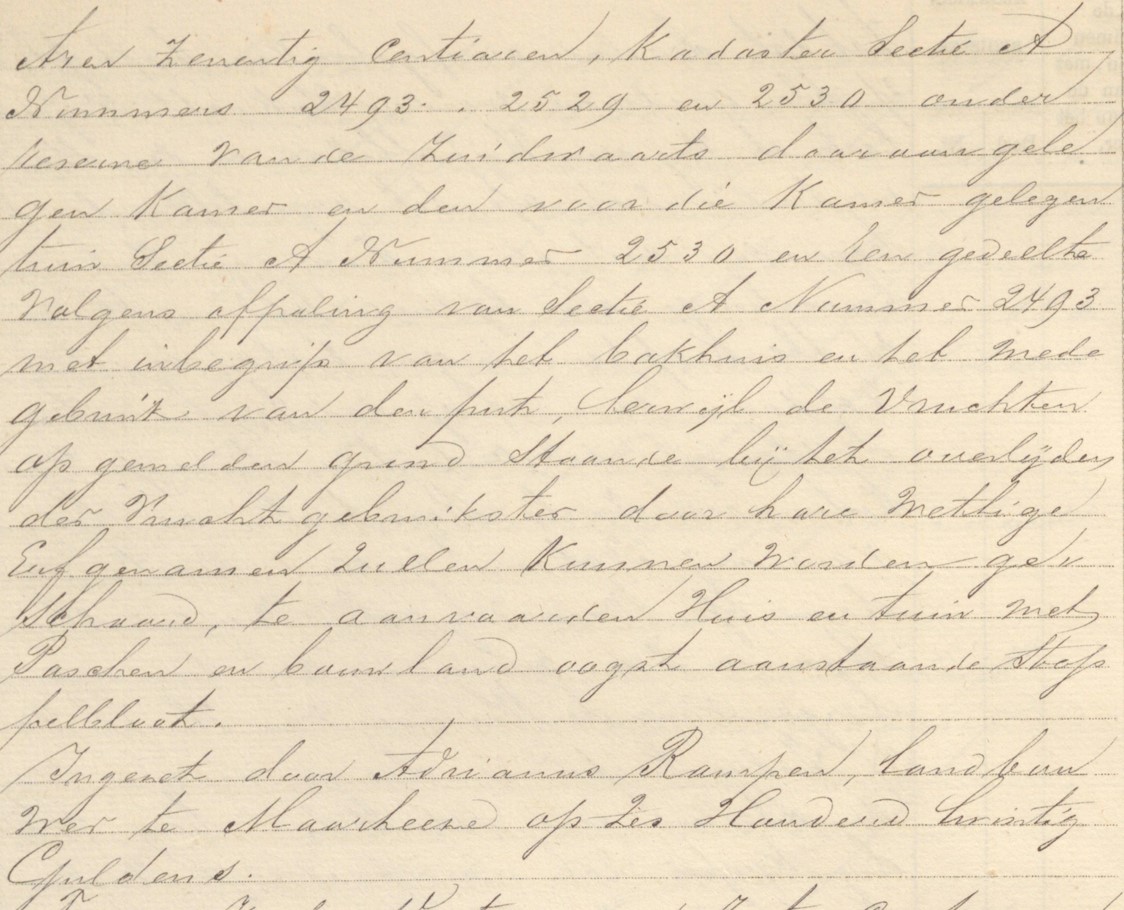 Aren zeventig Centiaren, Kadaster Sectie A
Nummers 2493. 2529 en 2530 onder
reserve van de Zuidwaarts daaraangele
gen Kamer en den voor die Kamer gelegen
tuin Sectie A Nummer 2530 en een gedeelte
Volgens afpaling van Sectie A Nummer 2493
met inbegrip van het bakhuis en het mede
gebruik van den put, terwijl de Vruchten
op gemelden grond staande bij het overlijden
der Vruchtgebruikster door hare Wettige
Erfgenamen zullen Kunnen worden ge„
schaard, te aanvaarden Huis en tuin met
Paschen en bouwland oogst aanstaande Stop
pelbloot.
Ingezet door Adrianus Rampen, landbou
wer te Maarheeze op Zes Honderd twintig
Guldens.